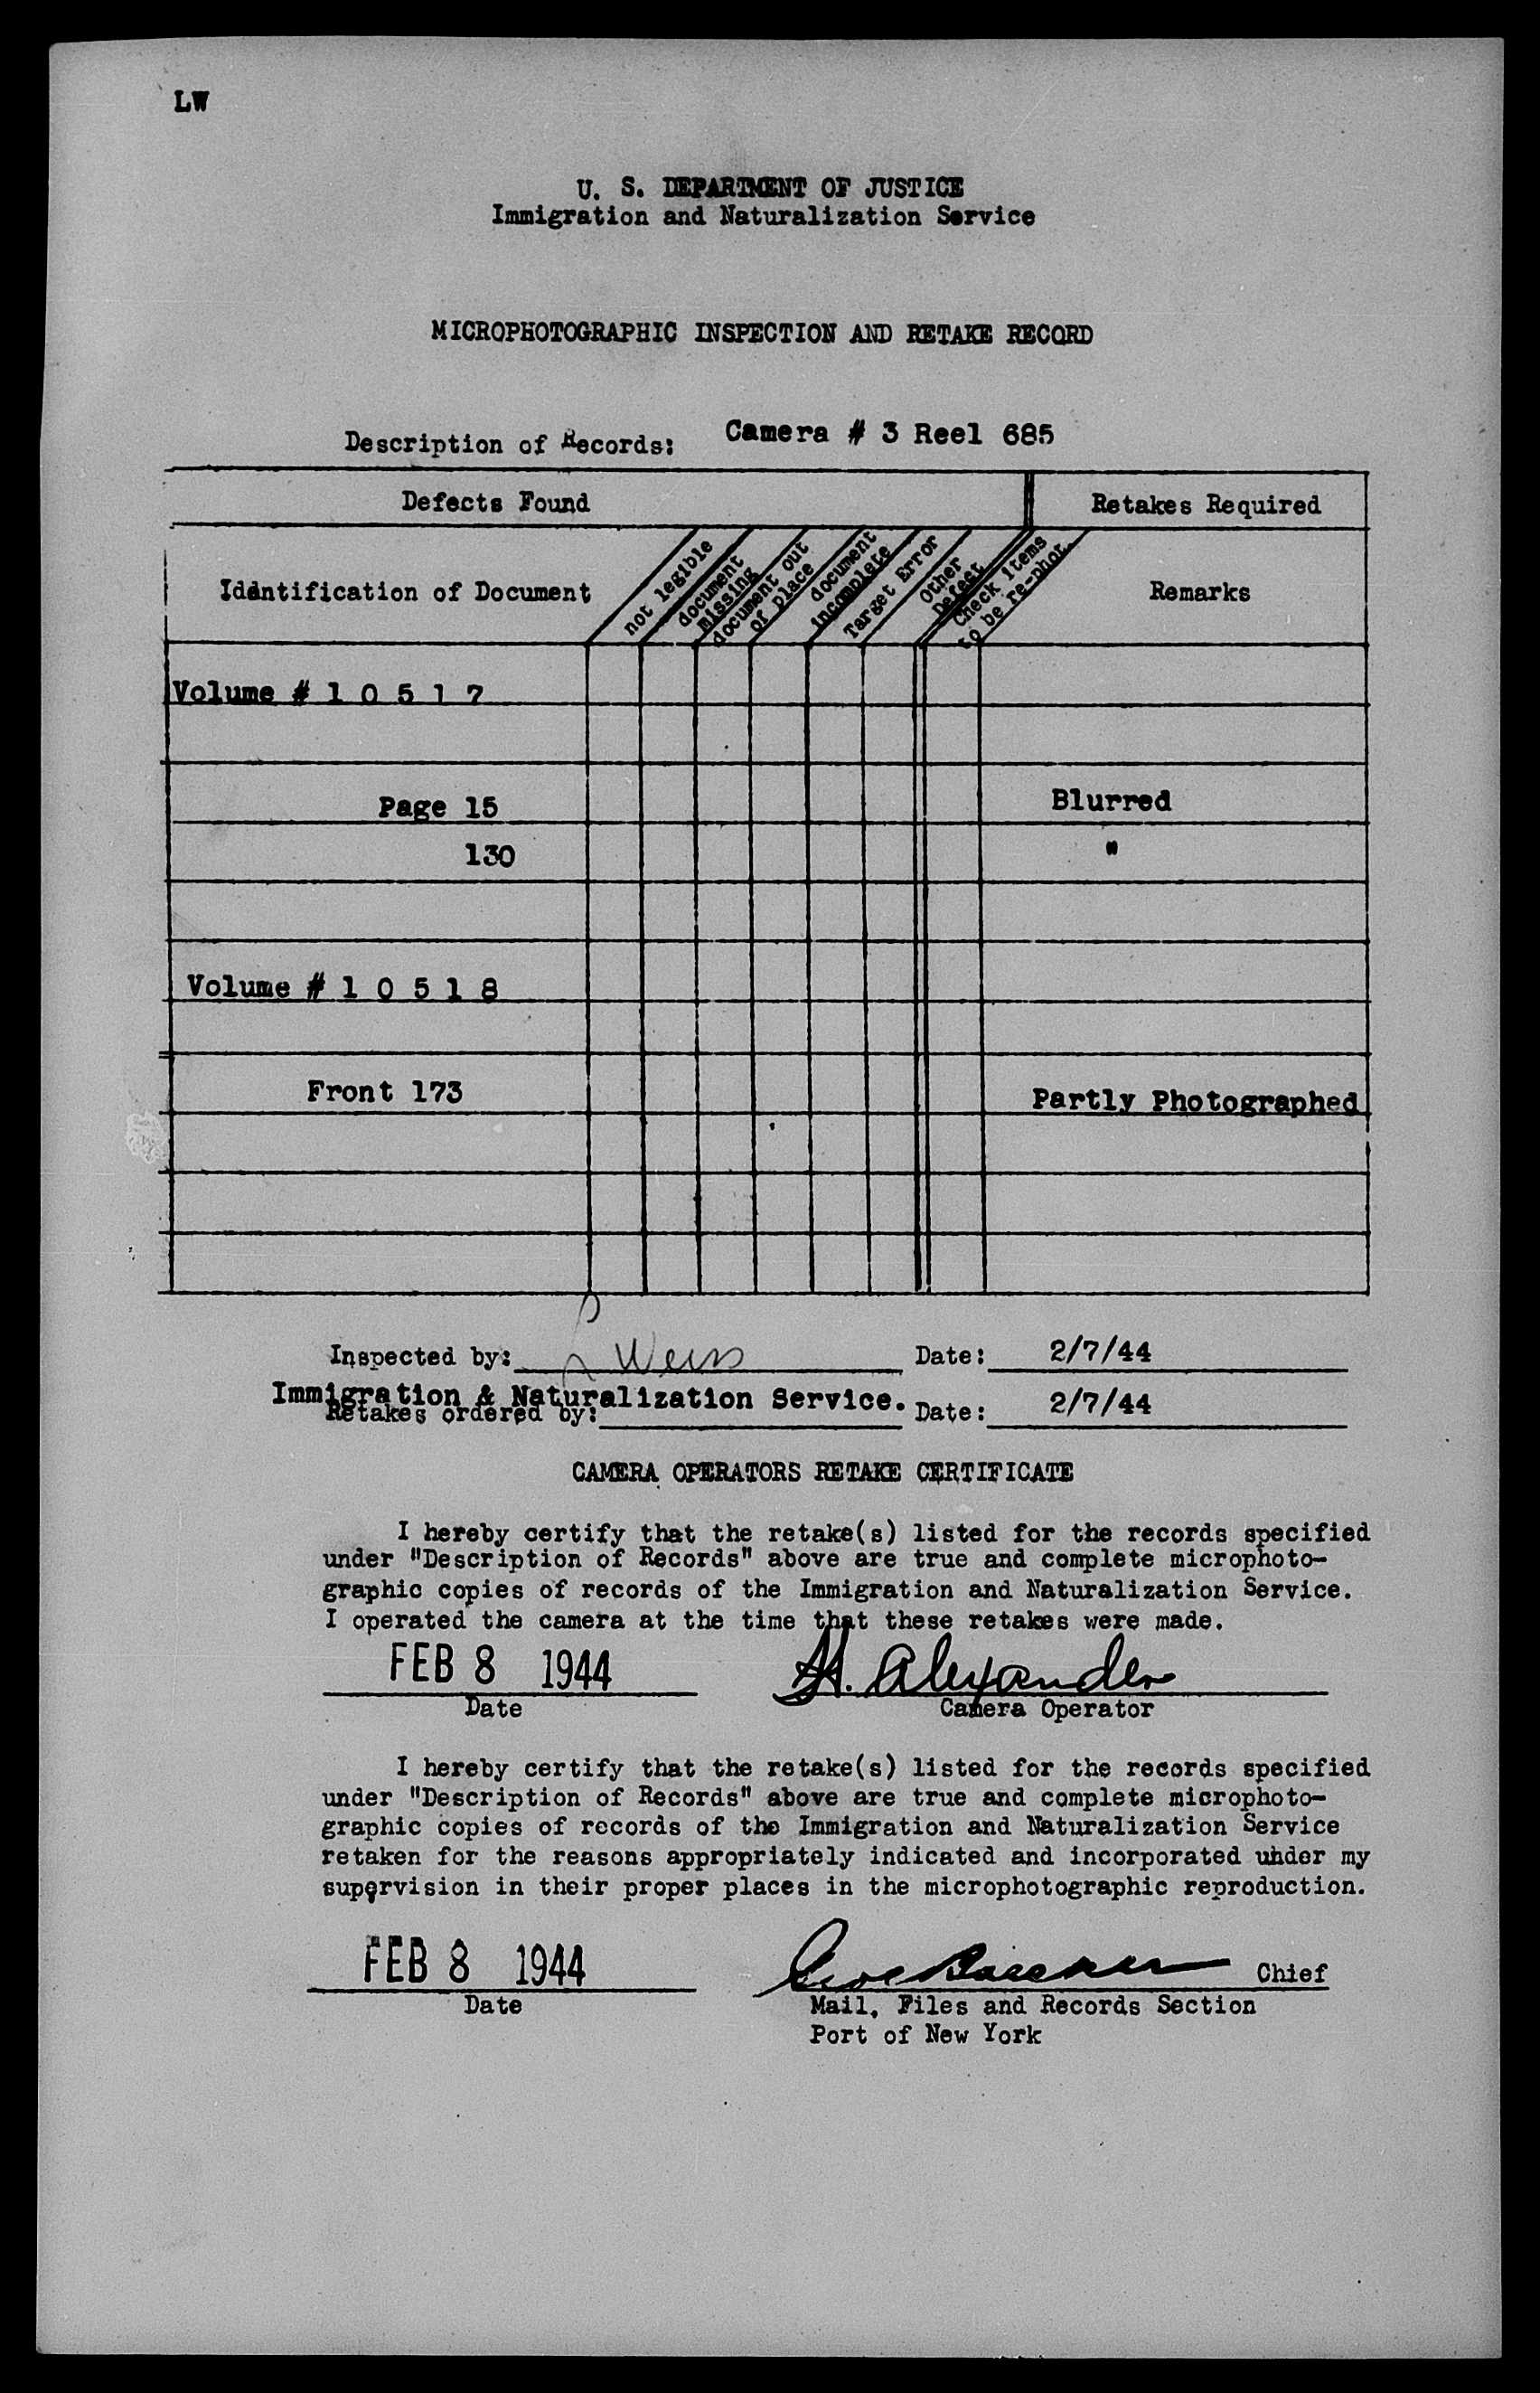 LW
U. S. DEPARTMENT OF JUSTICE
Immigration and Naturalization Service
MICROPHOTOGRAPHIC INSPECTION AND RETAKE RECORD
Description of Records: Camera # 3 Reel 685
Defects Found Retakes Required
Idantification of Document not legible document missing document out of place document incomplete Target Error Other Defect Check items to be re-phot. Remarks
Volume # 1 0 5 1 7
Page 15 Blurred
130 "
Volume # 1 0 5 1 8
Front 173 Partly Photographed
Inspected by: L Weiss Date: 2/7/44
Immigration & Naturalization Service.
Retakes ordered by: Date: 2/7/44
CAMERA OPERATORS RETAKE CERTIFICATE
I hereby certify that the retake(s) listed for the records specified
under "Description of Records" above are true and complete microphoto-
graphic copies of records of the Immigration and Naturalization Service.
I operated the camera at the time that these retakes were made.
FEB 8 1944 H. Alexander
Date Camera Operator
I hereby certify that the retake(s) listed for the records specified
under "Description of Records" above are true and complete microphoto-
graphic copies of records of the Immigration and Naturalization Service
retaken for the reasons appropriately indicated and incorporated under my
supervision in their proper places in the microphotographic reproduction.
FEB 8 1944 Chief
Date Mail, Files and Records Section
Port of New York